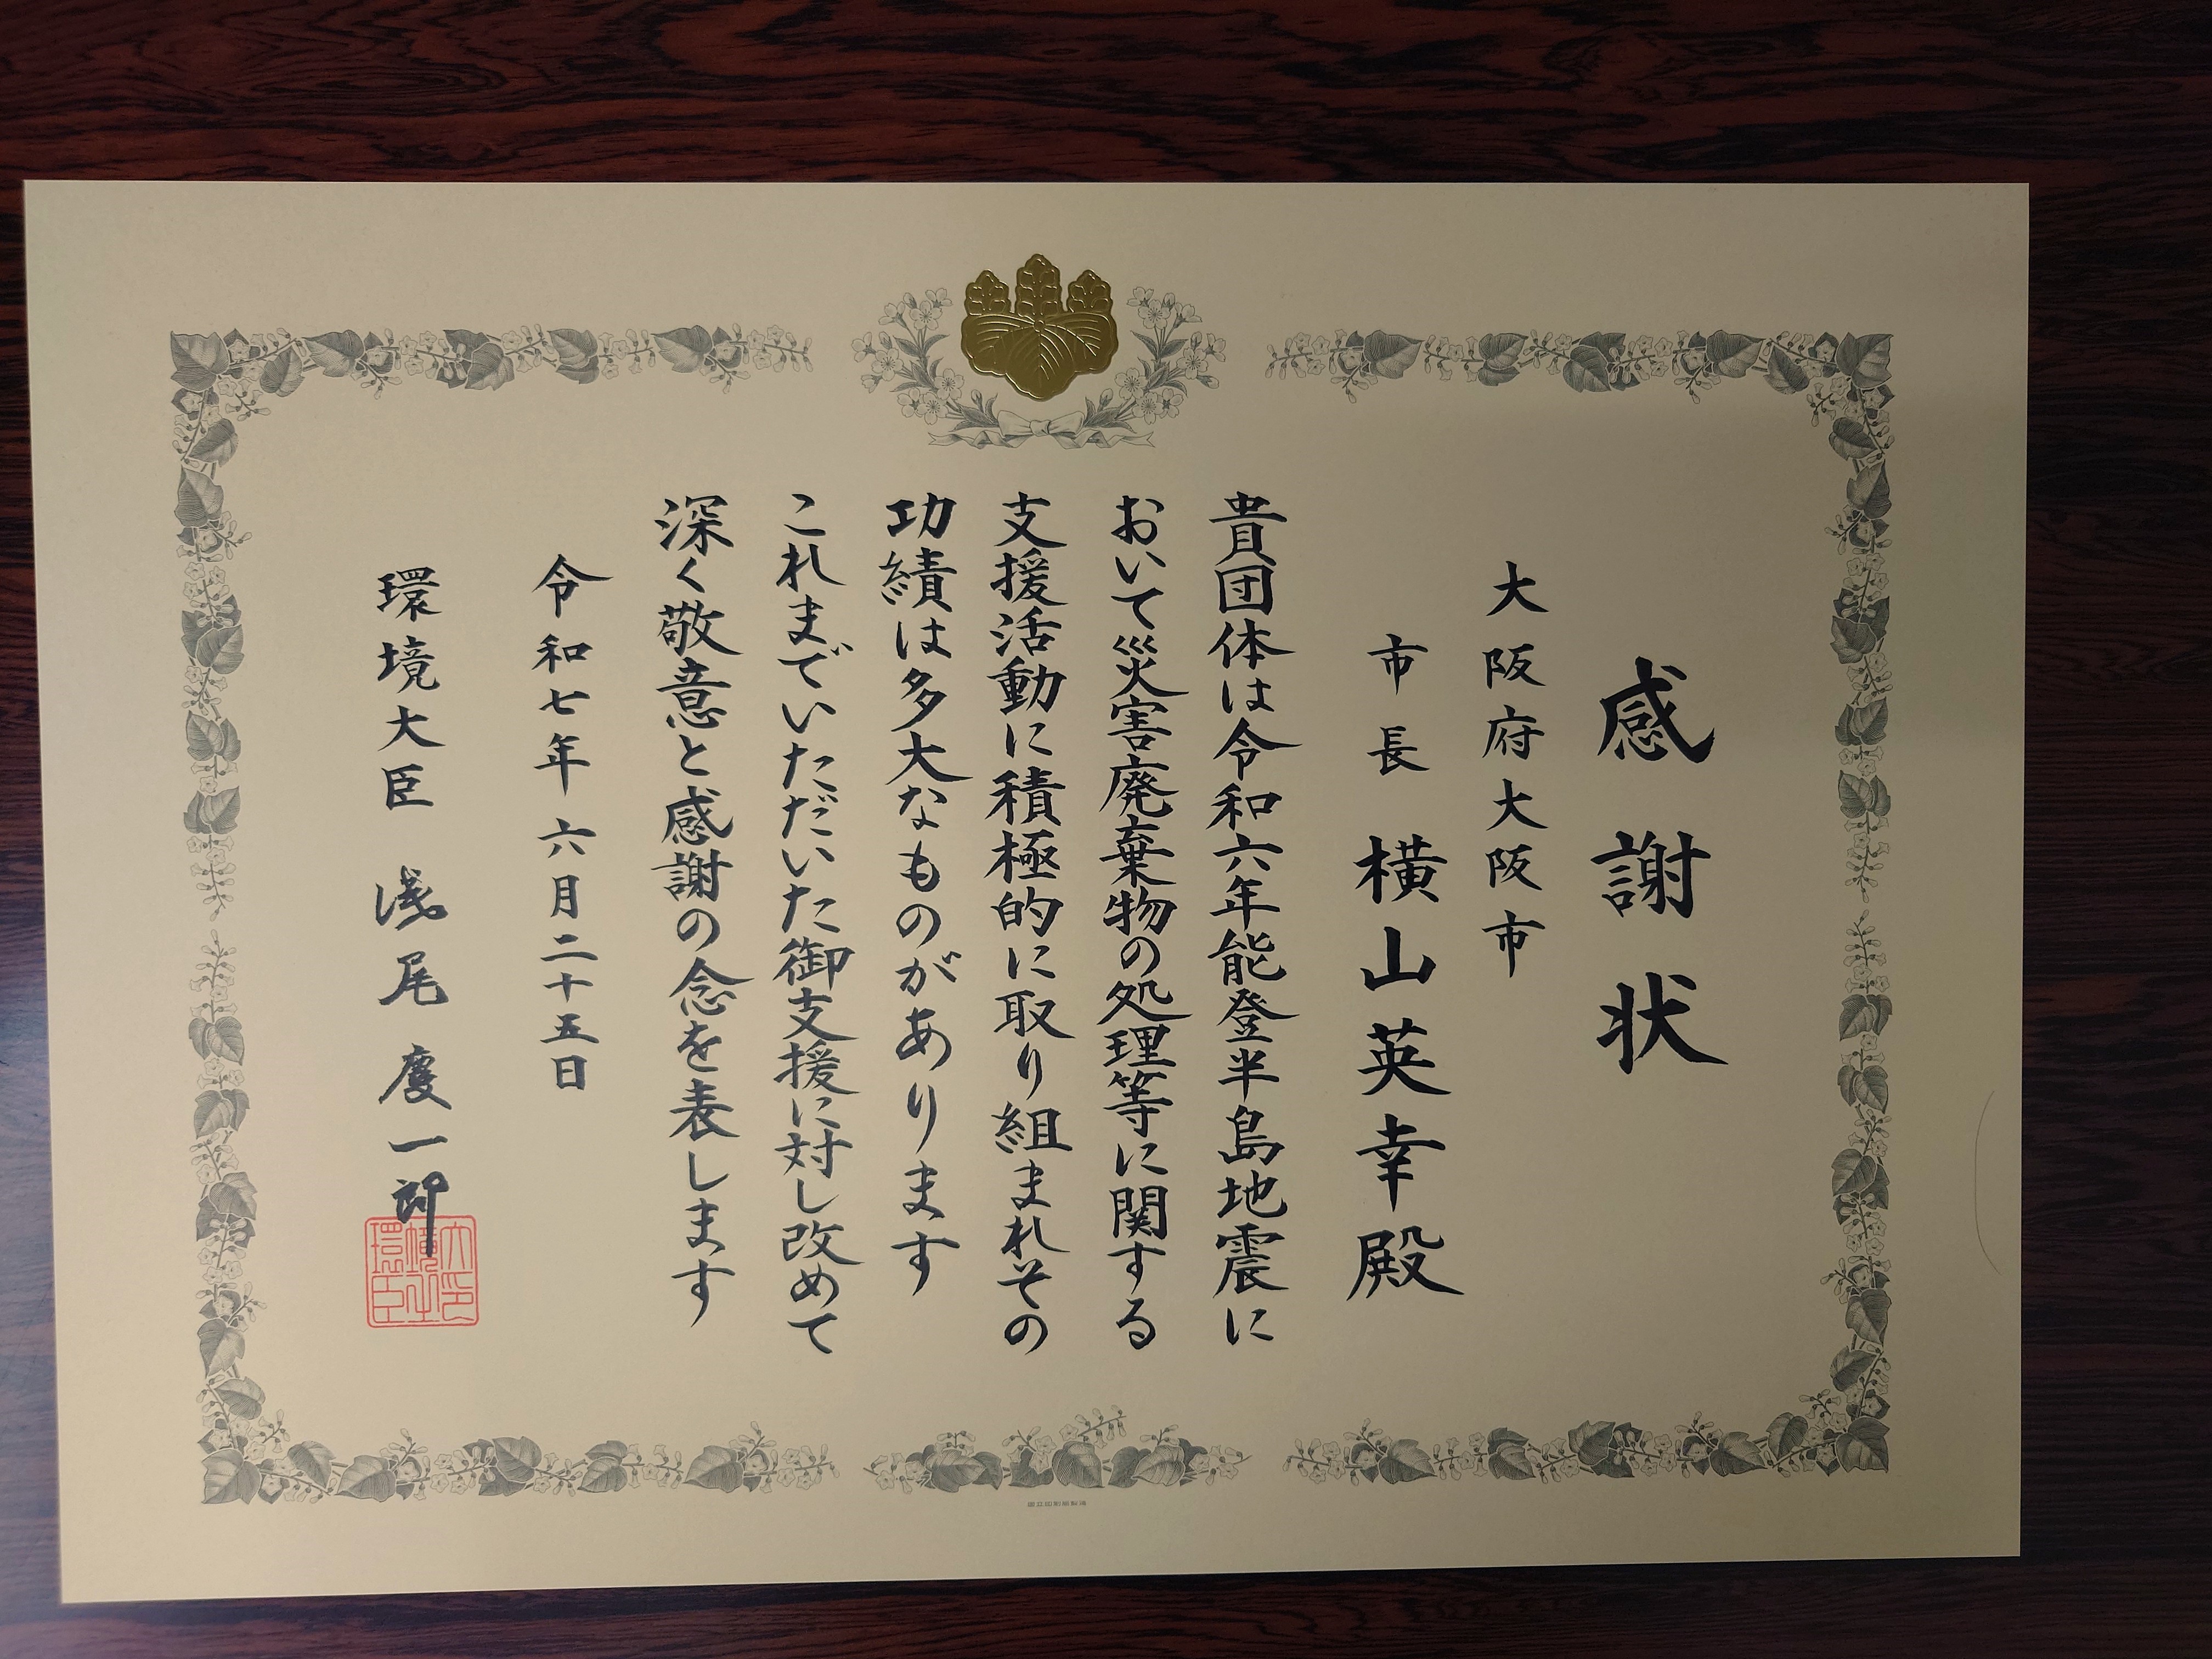 感謝状
大阪府大阪市
市長 横山英幸殿
貴団体は令和六年能登半島地震に
おいて災害廃棄物の処理等に関する
支援活動に積極的に取り組まれその
功績は多大なものがあります
これまでいただいた御支援に対し改めて
深く敬意と感謝の念を表します
令和七年六月二十五日
環境大臣 浅尾慶一郎
環境大臣之印